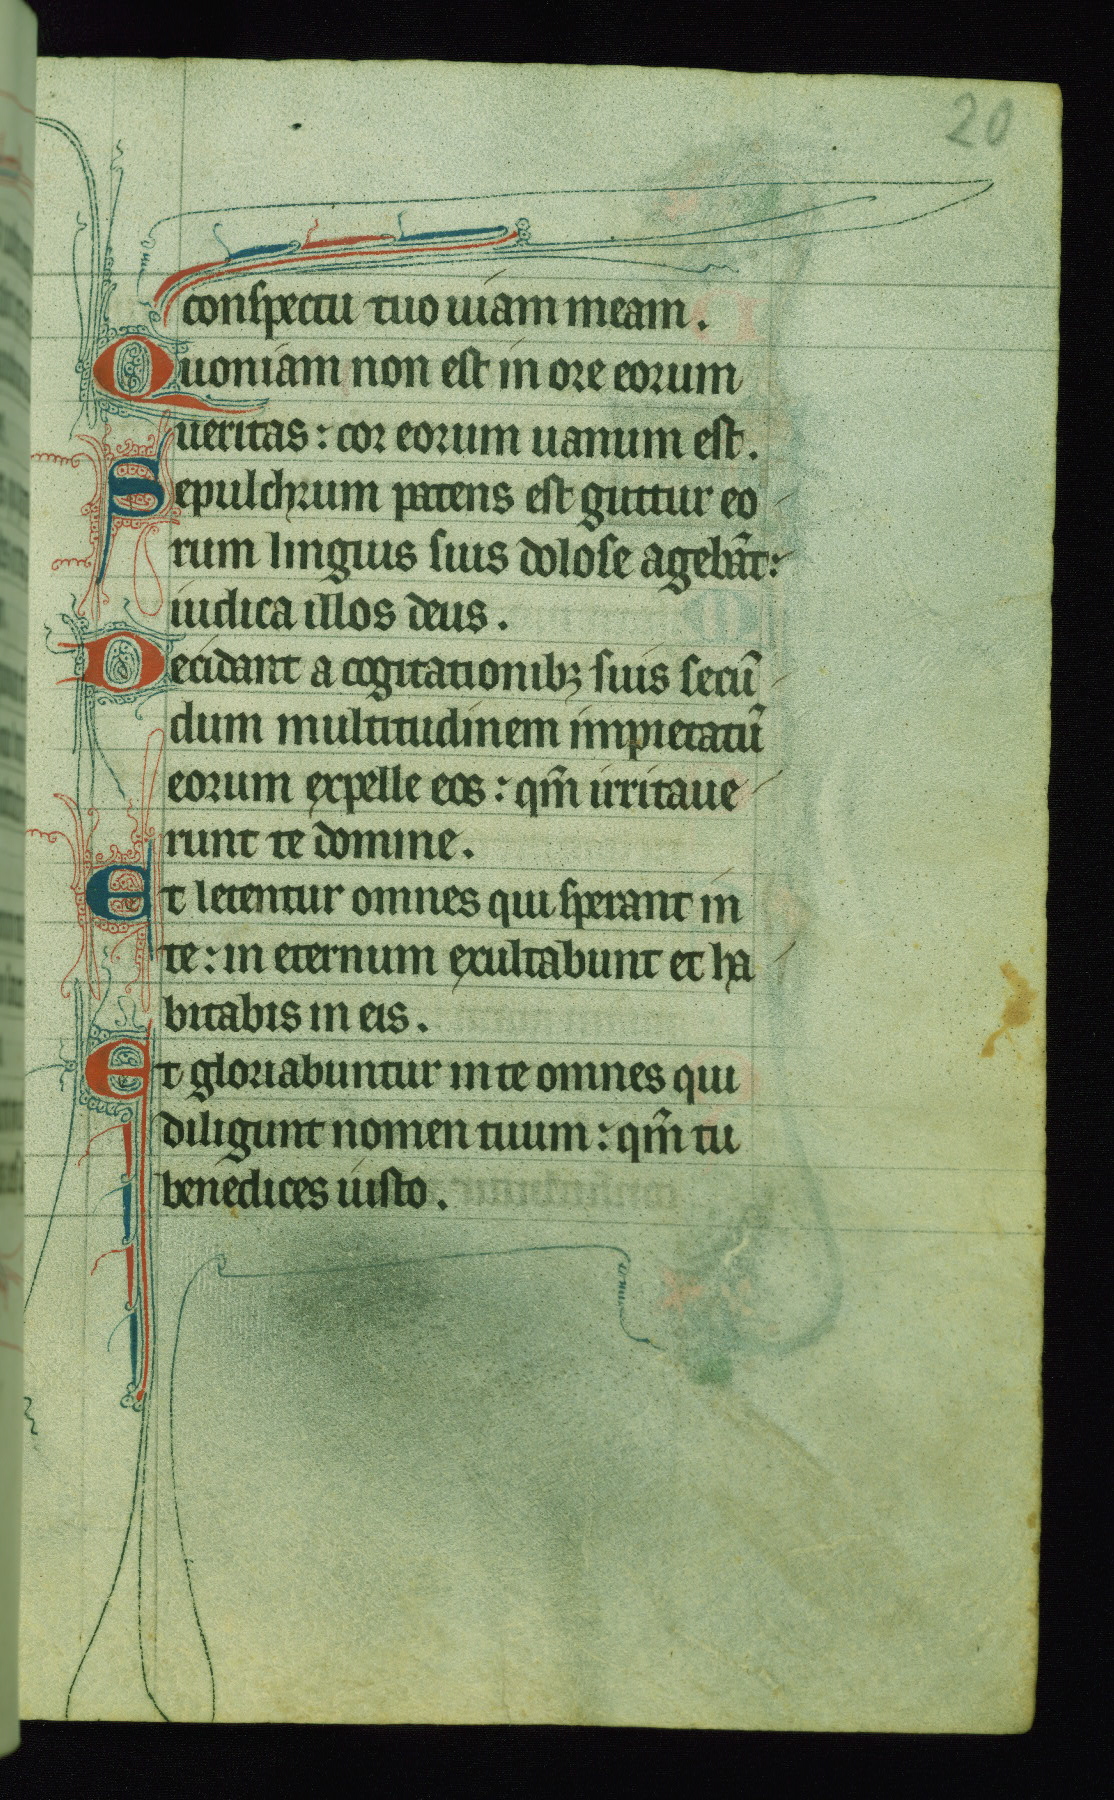 20
conspectu tuo uiam meam.
Quoniam non est in ore eorum
ueritas: cor eorum uanum est.
Sepulchrum patens est guttur eo
rum linguis suis dolose agebāt:
iudica illos deus.
Decidant a cogitationibꝫ suis secū
dum multitudinem impietatū
eorum expelle eos: qm̄ irritaue
runt te domine.
Et letentur omnes qui sperant in
te: in eternum exultabunt et ha
bitabis in eis.
Et gloriabuntur in te omnes qui
diligunt nomen tuum: qm̄ tu
benedices iusto.